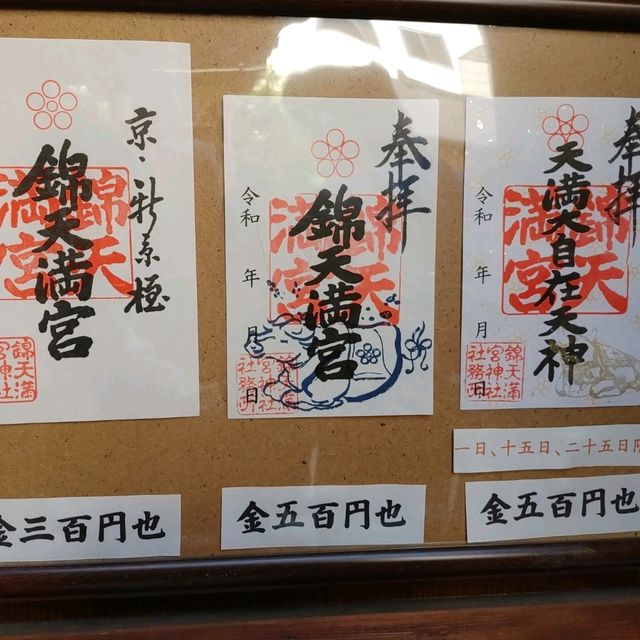 京・新京極
錦天満宮
錦天
満宮
錦天満
宮神社
金三百円也
奉拝
錦天満宮
令和 年 月 日
錦天
満宮
錦天満
宮神社
社務所
金五百円也
奉拝
天満大自在天神
令和 年 月 日
錦天
満宮
錦天満
宮神社
社務所
一日、十五日、二十五日限
金五百円也